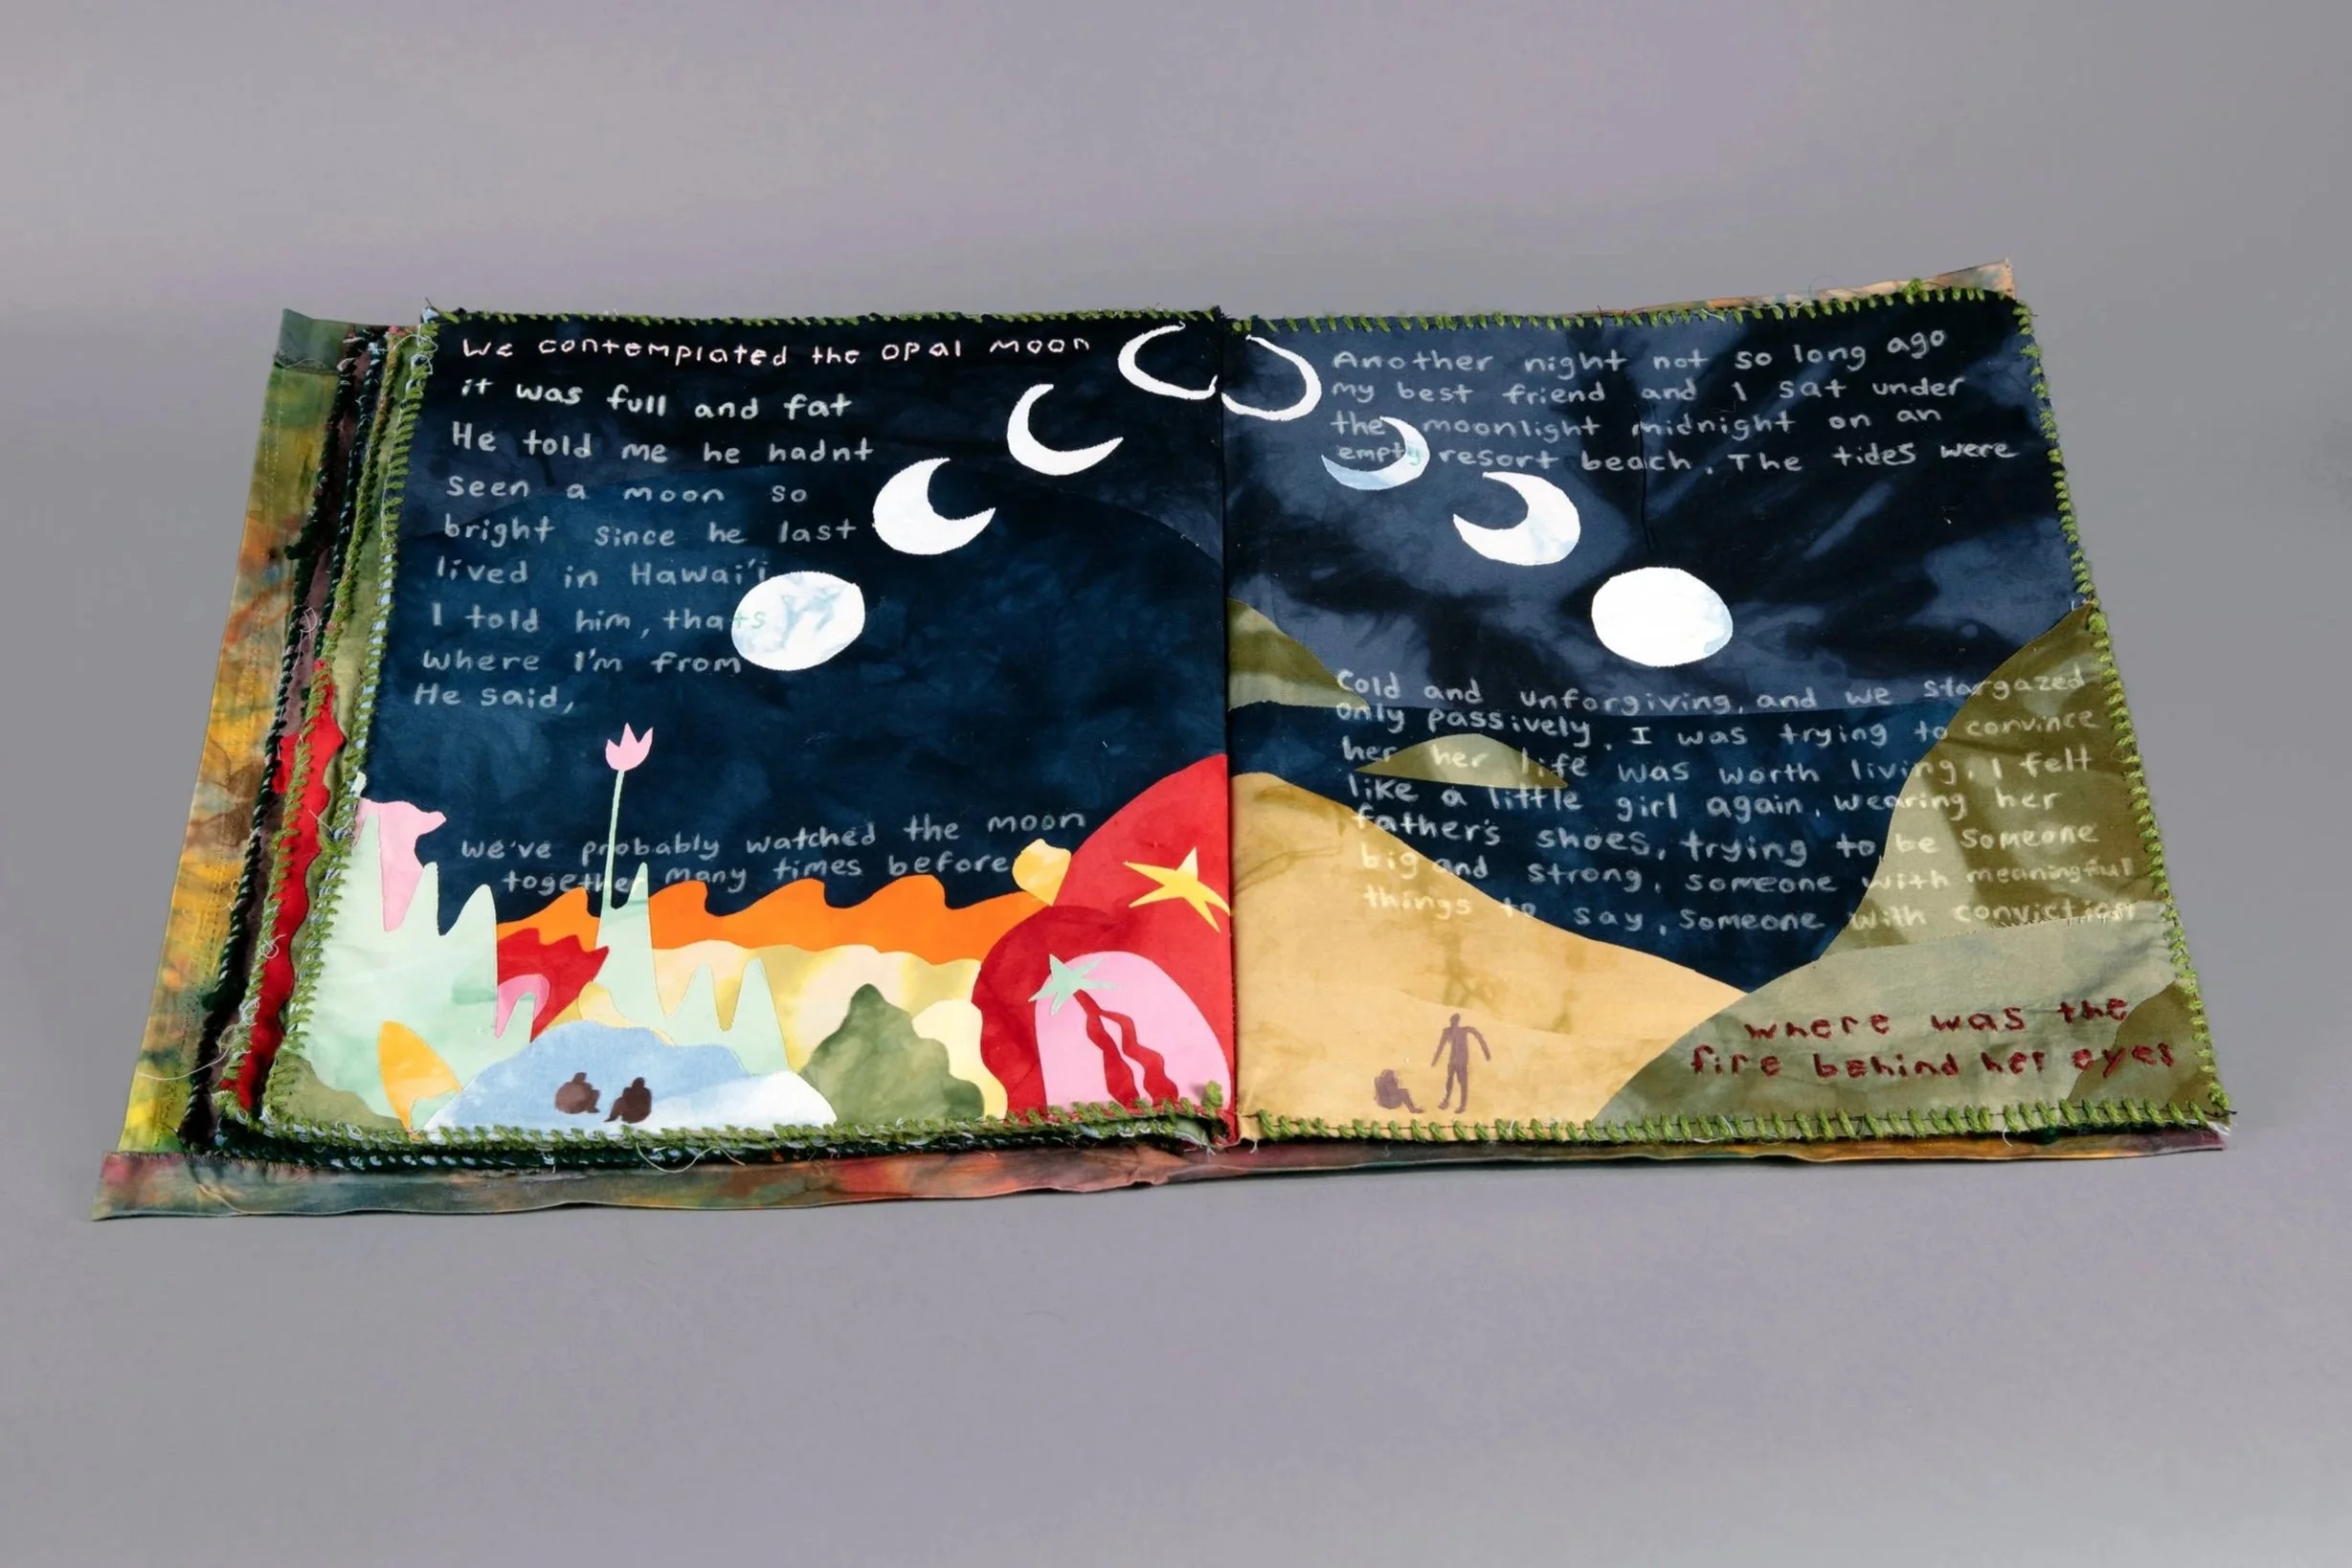 We contemplated the opal moon
it was full and fat
He told me he hadnt
seen a moon so
bright since he last
lived in Hawai'i
I told him, thats
where I'm from
He said,
we've probably watched the moon
together many times before
Another night not so long ago
my best friend and I sat under
the moonlight midnight on an
empty resort beach. The tides were
Cold and unforgiving, and we stargazed
only passively. I was trying to convince
her her life was worth living. I felt
like a little girl again, wearing her
father's shoes, trying to be someone
big and strong, someone with meaningful
things to say, someone with conviction
where was the
fire behind her eyes